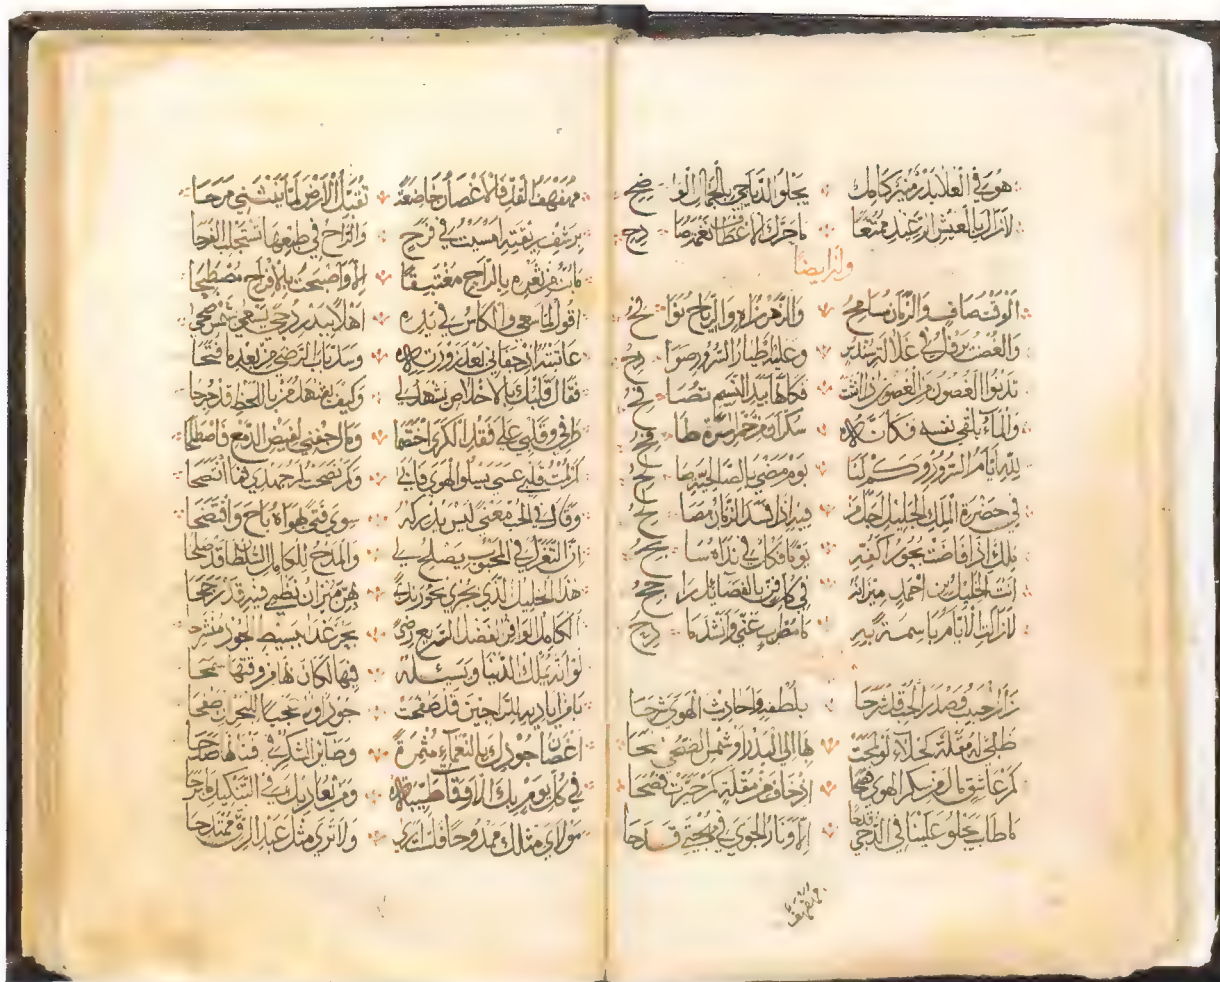 هو في العلا بدر منير كامل يجلو الدياجي بالجمال الوا ضح
لا زال بالعيش الرغيد ممتعا ما حرك الأغطاف نغمة صا دح
وله أيضا
الوقت صاف والزمان سامح والزهر زاه والرياح نوا فح
والغصن يرقص في غلائل سندس وعليه أطيار السرور صوا دح
تدنوا الغصون من الغصون إذا انثنت فكأنها بيد النسيم تصا فح
والماء يلقي نفسه فكأنه سكران من خمر المسرة طا فح
لله أيام السرور وكم لنا يوم مضى بالصالحية صا لح
في حضرة الملك الخليل أجل من فيه إذا فسد الزمان مصا لح
ملك إذا فاضت بحور أكفه يوما فكل في نداه سا بح
أنت الخليل بن أحمد ميزانه في كل فن بالفضائل را جح
لا زالت الأيام باسمة به ما مطرب غنى وأنشد ما دح
زار الحبيب وصدر الحب قد شرحا بلطفه وأحاديث الهوى شرحا
ظبي له مقلة كحلاء لو لمحت بها إلى البدر أو شمس الضحى محا
كم عاشق مال من سكر الهوى وصحا إذ خاف من مقلة كم جردت فضحا
ما طاب يجلو علينا في الدجى قدحا إلا ونار الجوى في مهجتي قدحا
مهفهف
مهفهف القد فالأغصان خاضعة تقبل الأرض لما ينثني مرحا
برشف ريقته أمسيت في فرح والراح في طبعها تستجلب الفرحا
ما بت من ثغره بالراح مغتبقا إلا وأصبحت بالأفراح مصطبحا
أقول لما سعى والكاس في يده أهلا ببدر دجى يسعى بشمس ضحى
عاتبته إذ جفاني بعد زورته وسد باب الرضى من بعد ما فتحا
فقال قلبك بالإخلاص يشهد لي وكيف يشهد من باللحظ قد جرحا
دمي وقلبي على فقد الكرى اختصما ومال جفني لفيض الدمع فاصطلحا
ألزمت قلبي عسى يسلو الهوى فأبى وكم نصحت له جهدي فما انتصحا
وقال في الحب معنى ليس يدركه سوى فتى بهواه باح وافتضحا
إن التغزل في المحبوب يصلح لي والمدح للكامل السلطان قد صلحا
هذا الخليل الذي بحري بحور ندى بهن ميزان نظمي فيه قد رجحا
الكامل الوافر الفضل السريع رضى بحر غدا ببسيط الجود منشرحا
لو أنه يملك الدنيا ويسئله فيها لكان بها من وقتها سمحا
يا من أياديه للراجين قد صفحت جودا وعجبا للبحران صفحا
أغصان جودك بالنعماء مثمرة وطائر الشكر في أفنانها صدحا
في كل يوم يريك الله
مولاي مثلك ممدوحا فلست أرى ولا ترى مثل عبد الرق ممتدحا